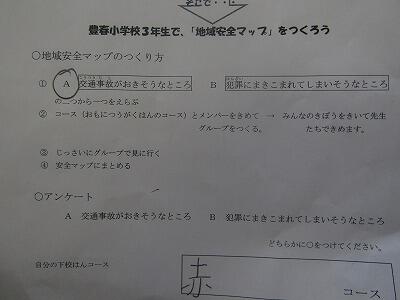 そこで・・に
豊春小学校3年生で、「地域安全マップ」をつくろう
○地域安全マップのつくり方
① A 交通事故がおきそうなところ B 犯罪にまきこまれてしまいそうなところ
の二つから一つをえらぶ
② コース（おもにつうがくはんのコース）とメンバーをきめて → みんなのきぼうをきいて先生
グループをつくる。 たちできめます。
③ じっさいにグループで見に行く
④ 安全マップにまとめる
○アンケート
A 交通事故がおきそうなところ B 犯罪にまきこまれてしまいそうなところ
どちらかに○をつけてください。
自分の下校はんコース
赤 コース